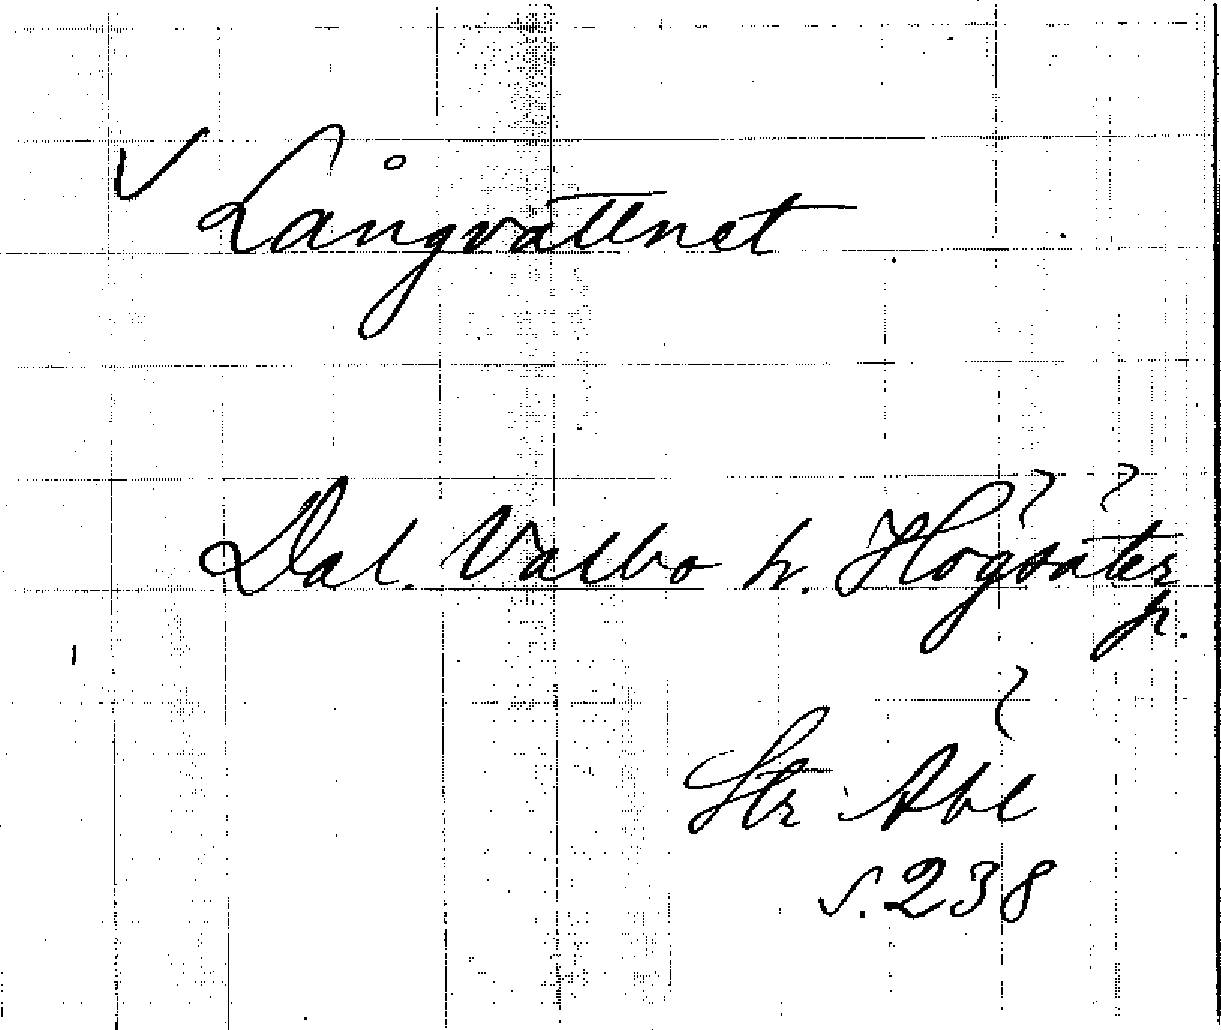 ✓ Långvattnet
Dal. Valbo hr. Högsäter
fr.
Str. Abl
s. 238